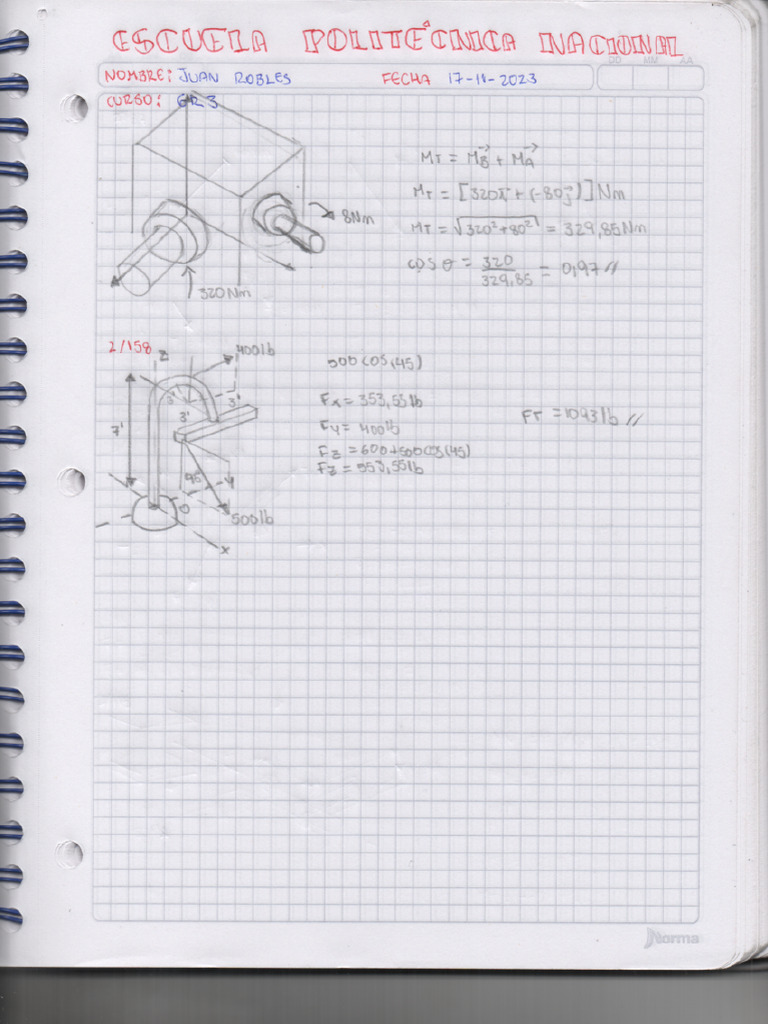 ESCUELA POLITÉCNICA NACIONAL
DD MM AA
NOMBRE: JUAN ROBLES FECHA 17-11-2023
CURSO: GR3
MT = MB + MA
MT = [320i + (-80j)] Nm
MT = √320²+80² = 329,85Nm
cos θ = 320/329,85 = 0,97 //
8Nm
320Nm
2/158
z
400lb
3'
3'
3'
7'
45
O
500lb
x
500 cos(45)
Fx = 353,55lb
Fy = 400lb
Fz = 600+500cos(45)
Fz = 953,55lb
FT = 1093lb //
Norma